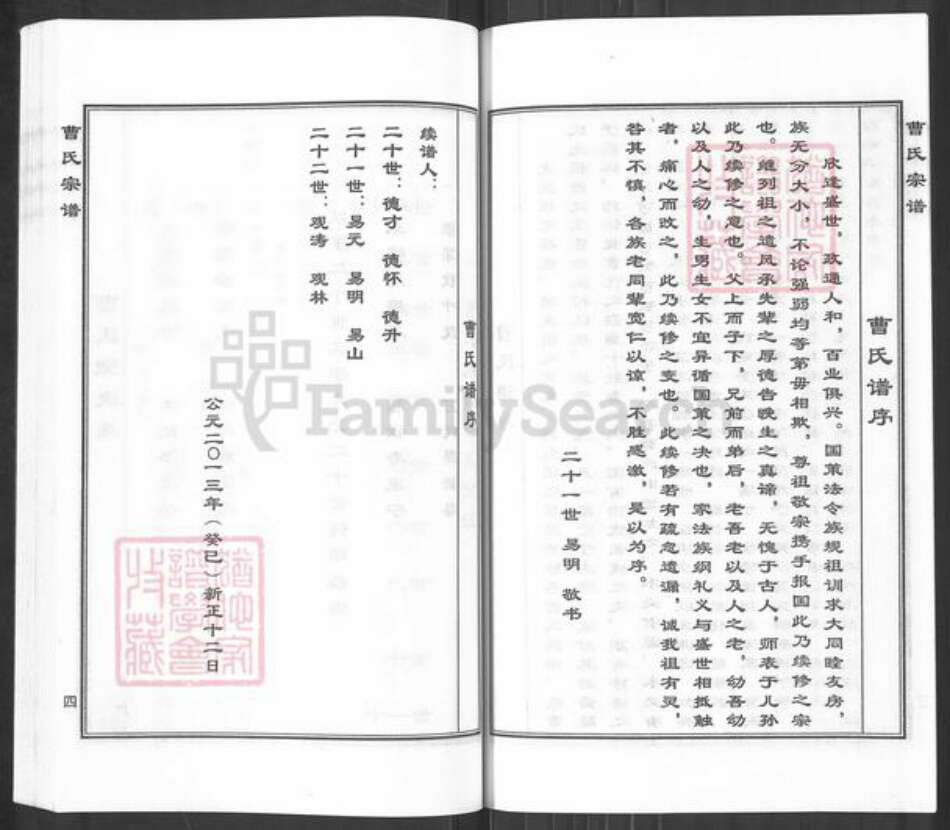 曹氏宗谱
曹氏谱序
欣逢盛世，政通人和，百业俱兴。国策法令族规祖训求大同睦友房，
族无分大小，不论强弱均等第毋相欺，尊祖敬宗携手报国此乃续修之宗
也。继列祖之遗风承先辈之厚德告晚生之真谛，无愧于古人，师表于儿孙
此乃续修之意也。父上而子下，兄前而弟后，老吾老以及人之老，幼吾幼
以及人之幼，生男生女不宜异循国策之决也，家法族纲礼义与盛世相抵触
者，痛心而改之，此乃续修之变也。此续修若有疏忽遗漏，诚我祖有灵，
咎其不慎，各族老同辈宽仁以谅，不胜感激，是以为序。
二十一世 易明 敬书
曹氏谱序
续谱人：
二十世：德才 德怀 德升
二十一世：易元 易明 易山
二十二世：观涛 观林
公元二〇一三年（癸巳）新正十二日
曹氏宗谱
四
FamilySearch